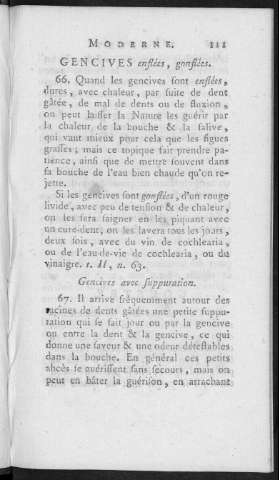 MODERNE. 111
GENCIVES enflées, gonflées.
66. Quand les gencives sont enflées,
dures, avec chaleur, par suite de dent
gâtée, de mal de dents ou de fluxion,
on peut laisser la Nature les guérir par
la chaleur de la bouche & la salive,
qui vaut mieux pour cela que les figues
grasses ; mais ce topique fait prendre pa-
tience, ainsi que de mettre souvent dans
sa bouche de l'eau bien chaude qu'on re-
jette.
Si les gencives sont gonflées, d'un rouge
livide, avec peu de tension & de chaleur,
on les fera saigner en les piquant avec
un cure-dent, on les lavera tous les jours,
deux fois, avec du vin de cochlearia,
ou de l'eau-de-vie de cochlearia, ou du
vinaigre. t. II, n. 63.
Gencives avec suppuration.
67. Il arrive fréquemment autour des
racines de dents gâtées une petite suppu-
ration qui se fait jour ou par la gencive
ou entre la dent & la gencive, ce qui
donne une saveur & une odeur détestables
dans la bouche. En général ces petits
abcès se guérissent sans secours, mais on
peut en hâter la guérison, en arrachant